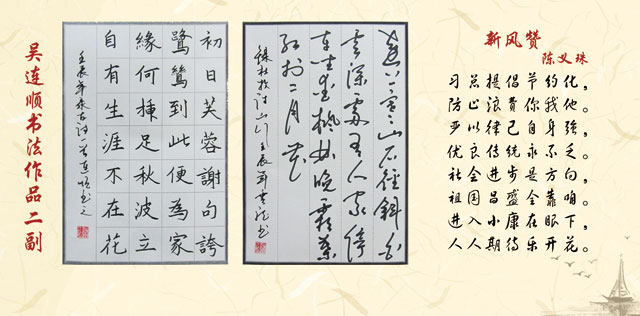 吴连顺书法作品二副
初日芙蓉謝句誇
鷺鷥到此便為家
緣何插足秋波立
自有生涯不在花
壬辰年录古詩一首连順书之
遠上寒山石徑斜白
雲深處有人家停
車坐愛楓林晚霜葉
紅於二月花
錄杜牧詩山行壬辰年連順书
新风赞
陈义珠
习总提倡节约化，
防止浪费你我他。
严以律己自身强，
优良传统永不乏。
社会进步是方向，
祖国昌盛全靠咱。
进入小康在眼下，
人人期待乐开花。